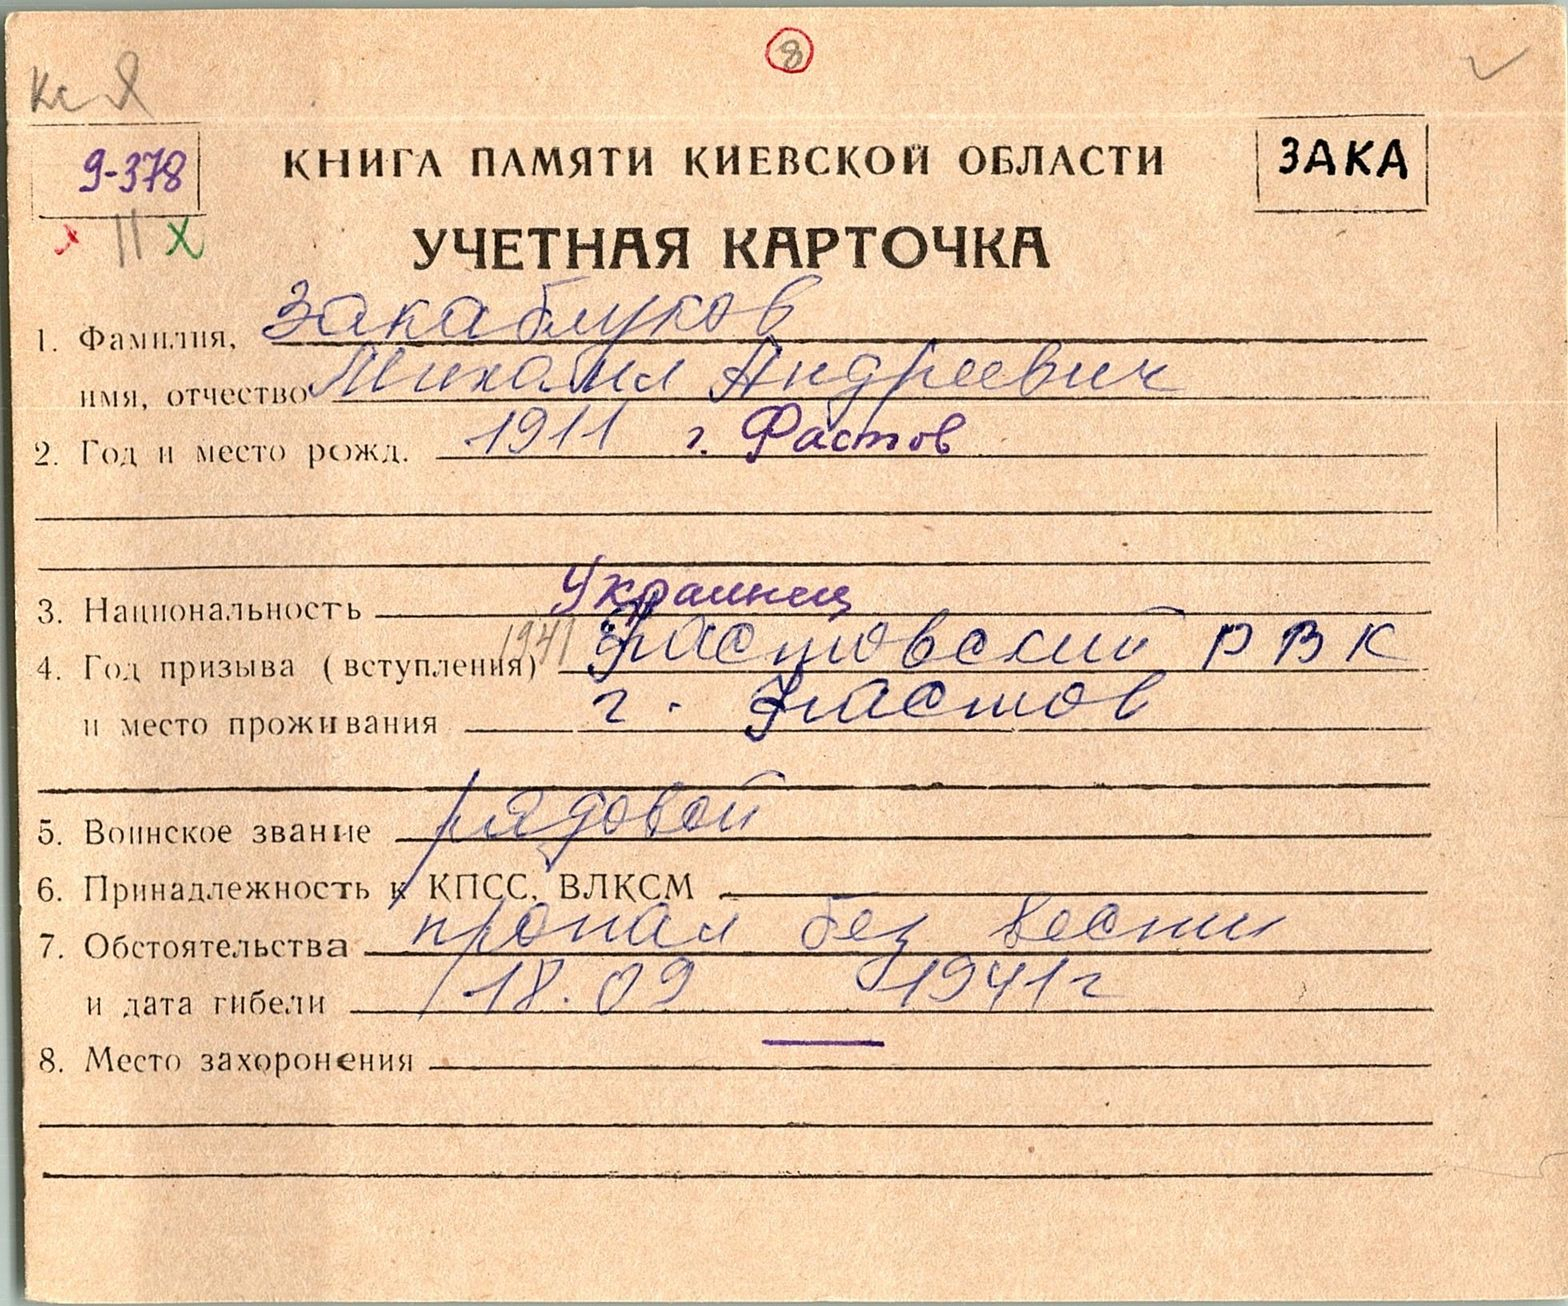 8
9-378
КНИГА ПАМЯТИ КИЕВСКОЙ ОБЛАСТИ
ЗАКА
х II х
УЧЕТНАЯ КАРТОЧКА
1. Фамилия, Закаблуков
имя, отчество Михаил Андреевич
2. Год и место рожд. 1911 г. Фастов
3. Национальность Украинец
4. Год призыва (вступления) 1941 Фастовский РВК
и место проживания г. Фастов
5. Воинское звание рядовой
6. Принадлежность к КПСС, ВЛКСМ
7. Обстоятельства пропал без вести
и дата гибели 18.09 1941г
8. Место захоронения —